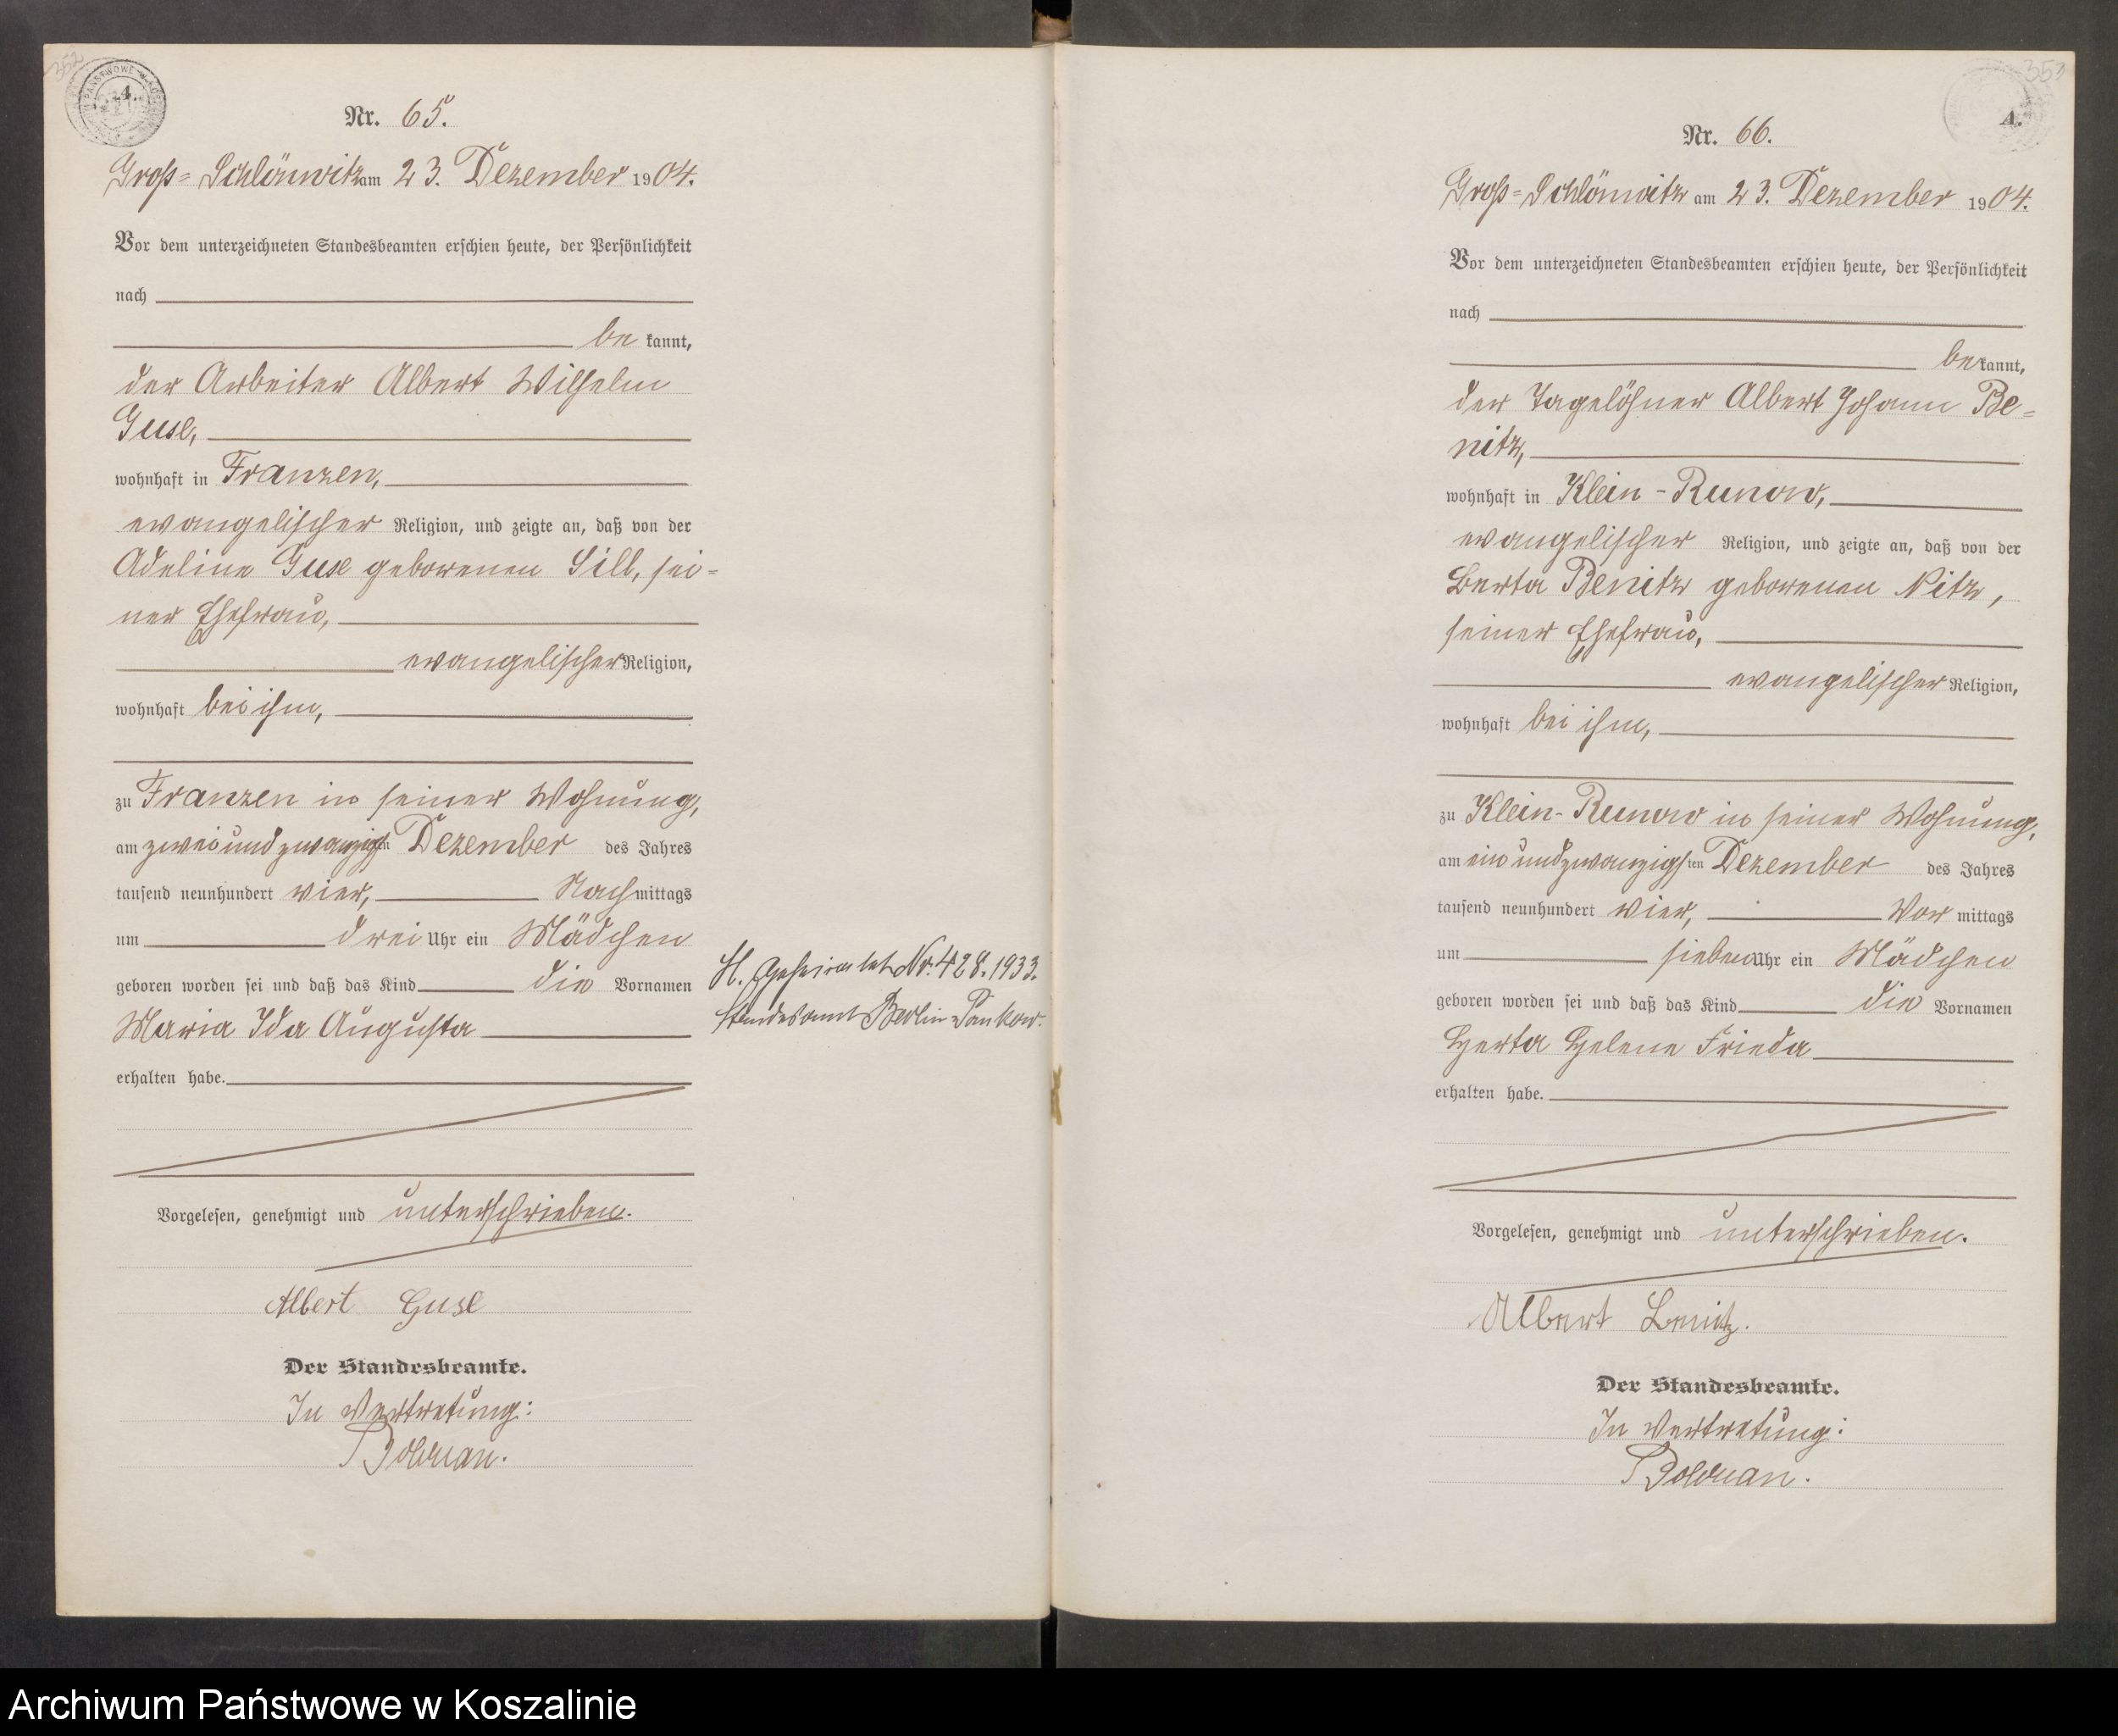 352
A.
Nr. 65.
Groß-Schlönwitz am 23. Dezember 1904.
Vor dem unterzeichneten Standesbeamten erschien heute, der Persönlichkeit
nach
be kannt,
der Arbeiter Albert Wilhelm
Guse,
wohnhaft in Franzen,
evangelischer Religion, und zeigte an, daß von der
Adeline Guse geborenen Sill, sei-
ner Ehefrau,
evangelischer Religion,
wohnhaft bei ihm,
zu Franzen in seiner Wohnung,
am zweiundzwanzigsten Dezember des Jahres
tausend neunhundert vier, Nachmittags
um drei Uhr ein Mädchen
geboren worden sei und daß das Kind die Vornamen
Maria Ida Augusta
erhalten habe.
Vorgelesen, genehmigt und unterschrieben.
Albert Guse
Der Standesbeamte.
In Vertretung:
Bolduan.
H. Geheiratet Nr. 428.1933.
Standesamt Berlin-Pankow.
353
A.
Nr. 66.
Groß-Schlönwitz am 23. Dezember 1904.
Vor dem unterzeichneten Standesbeamten erschien heute, der Persönlichkeit
nach
bekannt,
der Tagelöhner Albert Johann Be-
nitz,
wohnhaft in Klein-Runow,
evangelischer Religion, und zeigte an, daß von der
Berta Benitz geborenen Nitz,
seiner Ehefrau,
evangelischer Religion,
wohnhaft bei ihm,
zu Klein-Runow in seiner Wohnung,
am einundzwanzigsten Dezember des Jahres
tausend neunhundert vier, Vor mittags
um sieben Uhr ein Mädchen
geboren worden sei und daß das Kind die Vornamen
Herta Helene Frieda
erhalten habe.
Vorgelesen, genehmigt und unterschrieben.
Albert Benitz.
Der Standesbeamte.
In Vertretung:
Bolduan.
Archiwum Państwowe w Koszalinie